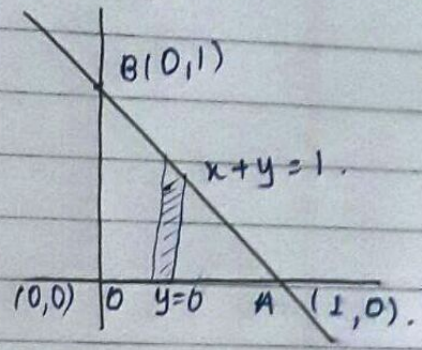 B(0,1)
x+y=1.
(0,0) O y=0 A (1,0).